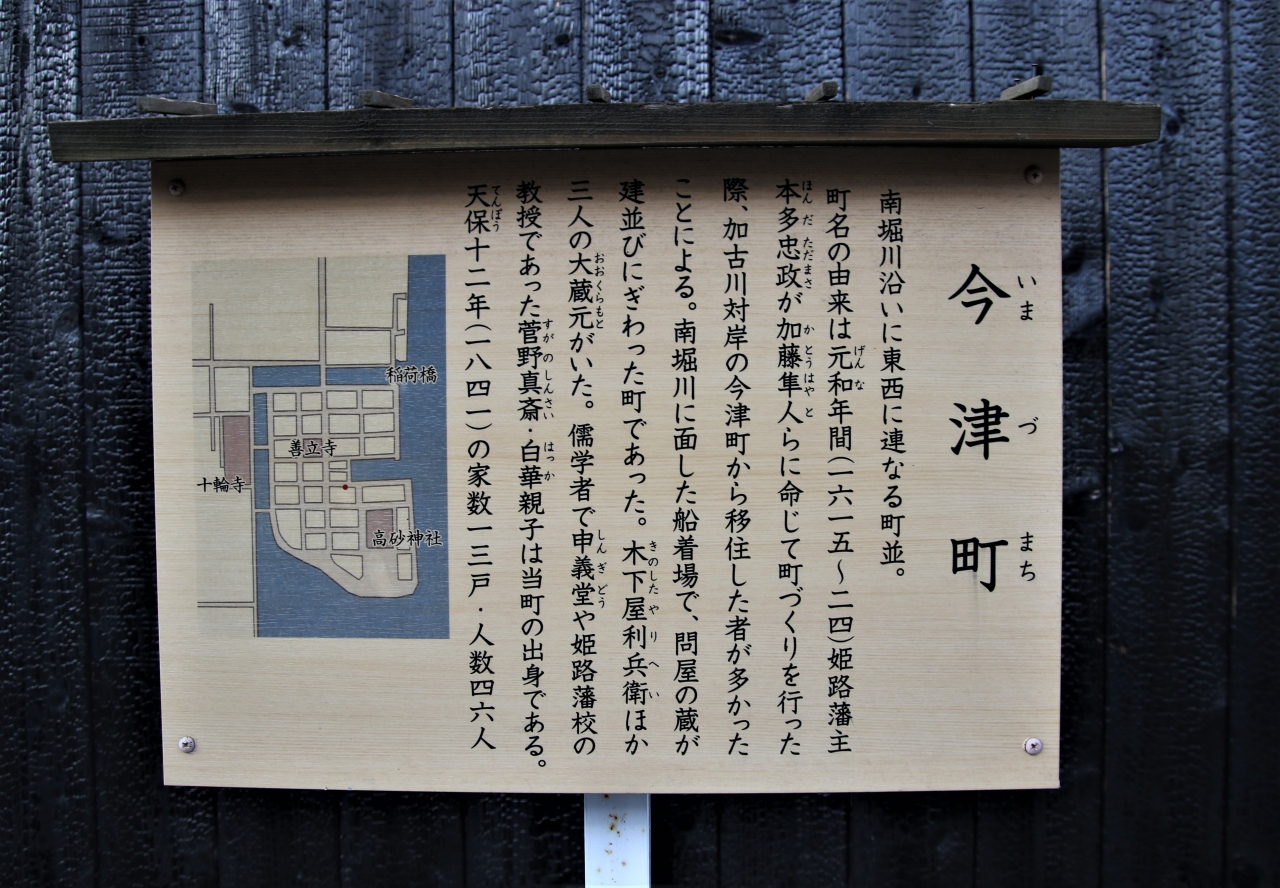 今津町
いまづまち
南堀川沿いに東西に連なる町並。
町名の由来は元和年間(一六一五〜二四)姫路藩主
げんな
本多忠政が加藤隼人らに命じて町づくりを行った
ほんだただまさ かとうはやと
際、加古川対岸の今津町から移住した者が多かった
ことによる。南堀川に面した船着場で、問屋の蔵が
建並びにぎわった町であった。木下屋利兵衛ほか
きのしたやりへい
三人の大蔵元がいた。儒学者で申義堂や姫路藩校の
おおくらもと しんぎどう
教授であった菅野真斎・白華親子は当町の出身である。
すがのしんさい はっか
天保十二年(一八四一)の家数一三戸・人数四六人
てんぽう
稲荷橋
善立寺
十輪寺
高砂神社